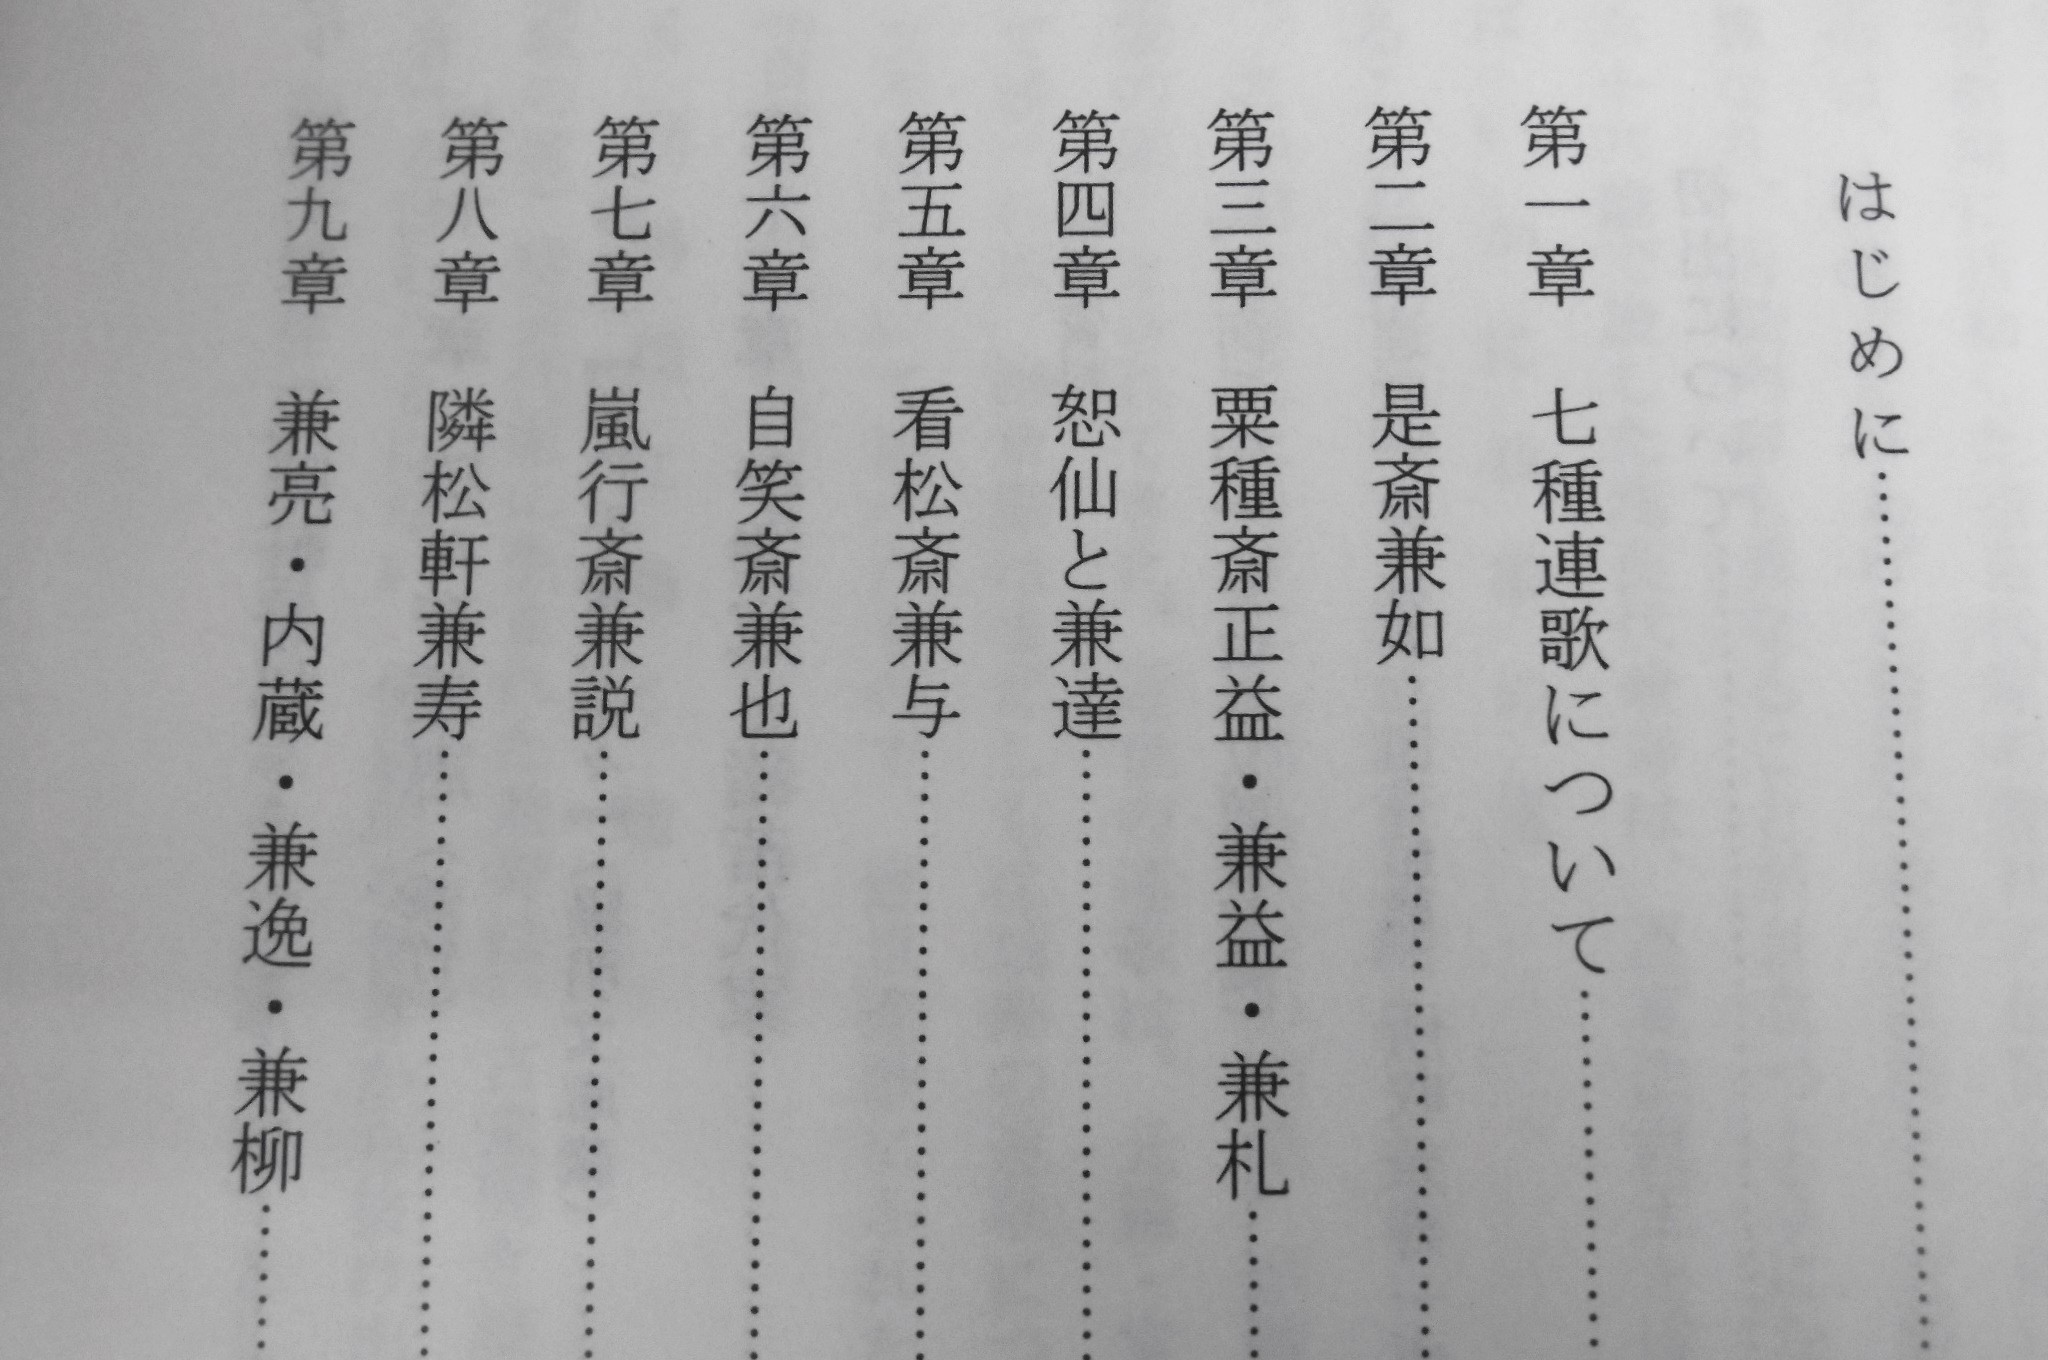 はじめに
第一章　七種連歌について
第二章　是斎兼如
第三章　粟種斎正益・兼益・兼札
第四章　恕仙と兼達
第五章　看松斎兼与
第六章　自笑斎兼也
第七章　嵐行斎兼説
第八章　隣松軒兼寿
第九章　兼亮・内蔵・兼逸・兼柳